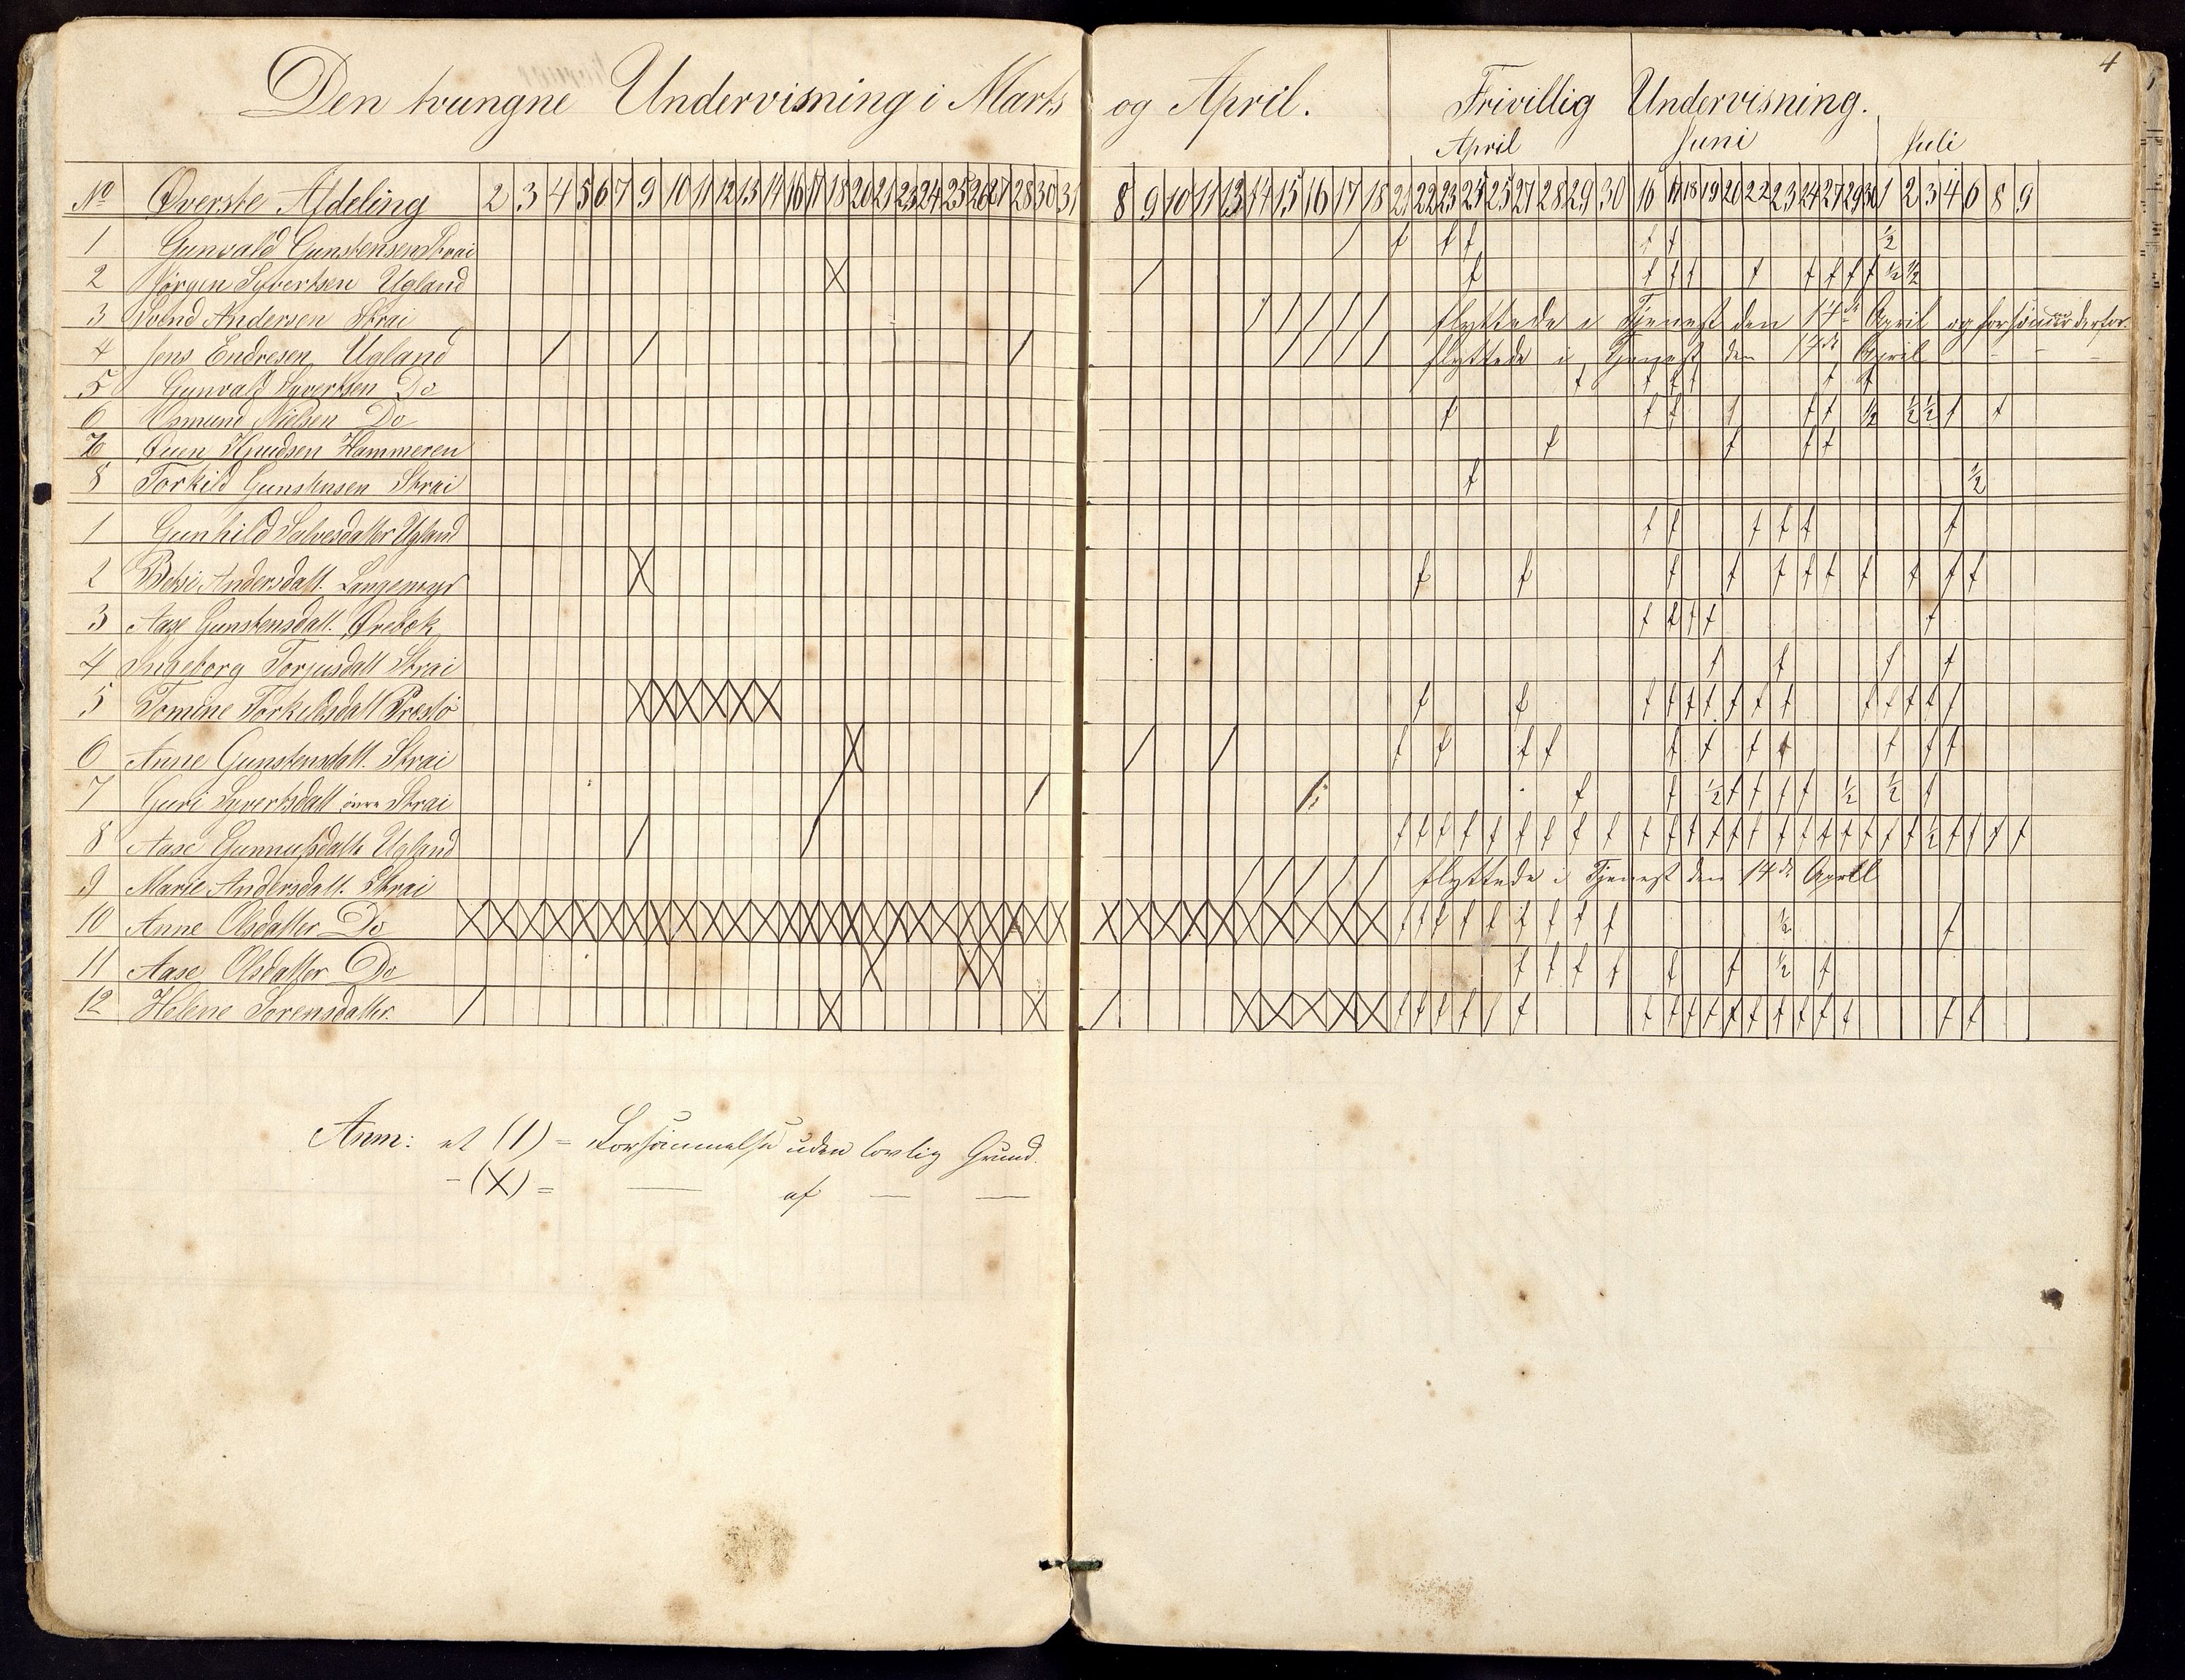 4
Den tvungne Undervisning i Marts og April. Frivillig Undervisning.
April Juni Juli
No Øverste Afdeling 2 3 4 5 6 7 9 10 11 12 13 14 16 17 18 20 21 23 24 25 26 27 28 30 31 8 9 10 11 13 14 15 16 17 18 21 22 23 24 25 27 28 29 30 16 17 18 19 20 22 23 24 27 29 30 1 2 3 4 6 8 9
1 Gunvald Gunstensen Strai / f f f f f ½
2 Jørgen Syvertsen Ugland X / f f f f f f f f f ½ ½
3 Svend Andersen Strai / / / / / flyttede i Tjenest den 14de April og forsømmer derfor
4 Jens Endresen Ugland / / / / / / / flyttede i Tjenest den 14de April – – –
5 Gunvald Syvertsen Do f f f f f f
6 Osmund Nielsen Do f f f f f f ½ ½ ½ f f
7 Knudsen Hammeren f f f f
8 Torkild Gunstensen Strai f ½
1 Gunhild Salvesdatter Ugland f f f f f f
2 Betsi Andersdatt. Langemyr X f f f f f f f f f f f
3 Aase Gunstensdatt. Ørebek f f f f f
4 Ingeborg Torjusdatt Strai f f f f
5 Tomine Torkildsdatt Presto X X X X X X f f f f f f f f f f f f f f
6 Anne Gunstensdatt. Strai X / / f f f f f f f f f f f
7 Guri Syvertsdatt øvre Strai / / / f f ½ f f f f ½ ½ f
8 Aase Gunnufsdatt. Ugland / / f f f f f f f f f f f f f f f f f f f f f f ½ f f f f
9 Marie Andersdatt. Strai / / / / / flyttede i Tjenest den 14de April
10 Anne Olsdatter Do X X X X X X X X X X X X X X X X X X X X X X X X X X X X X X X X X X X f f f f f f f f f ½ f
11 Aase Olsdatter Do X X X f f f f f f ½ f
12 Helene Sorensdatter. / X X / X X X X X f f f f f f f f f f f f f f f f f f
Anm: et (/) = Forsømmelse uden lovlig Grund.
– (X) = — af — —